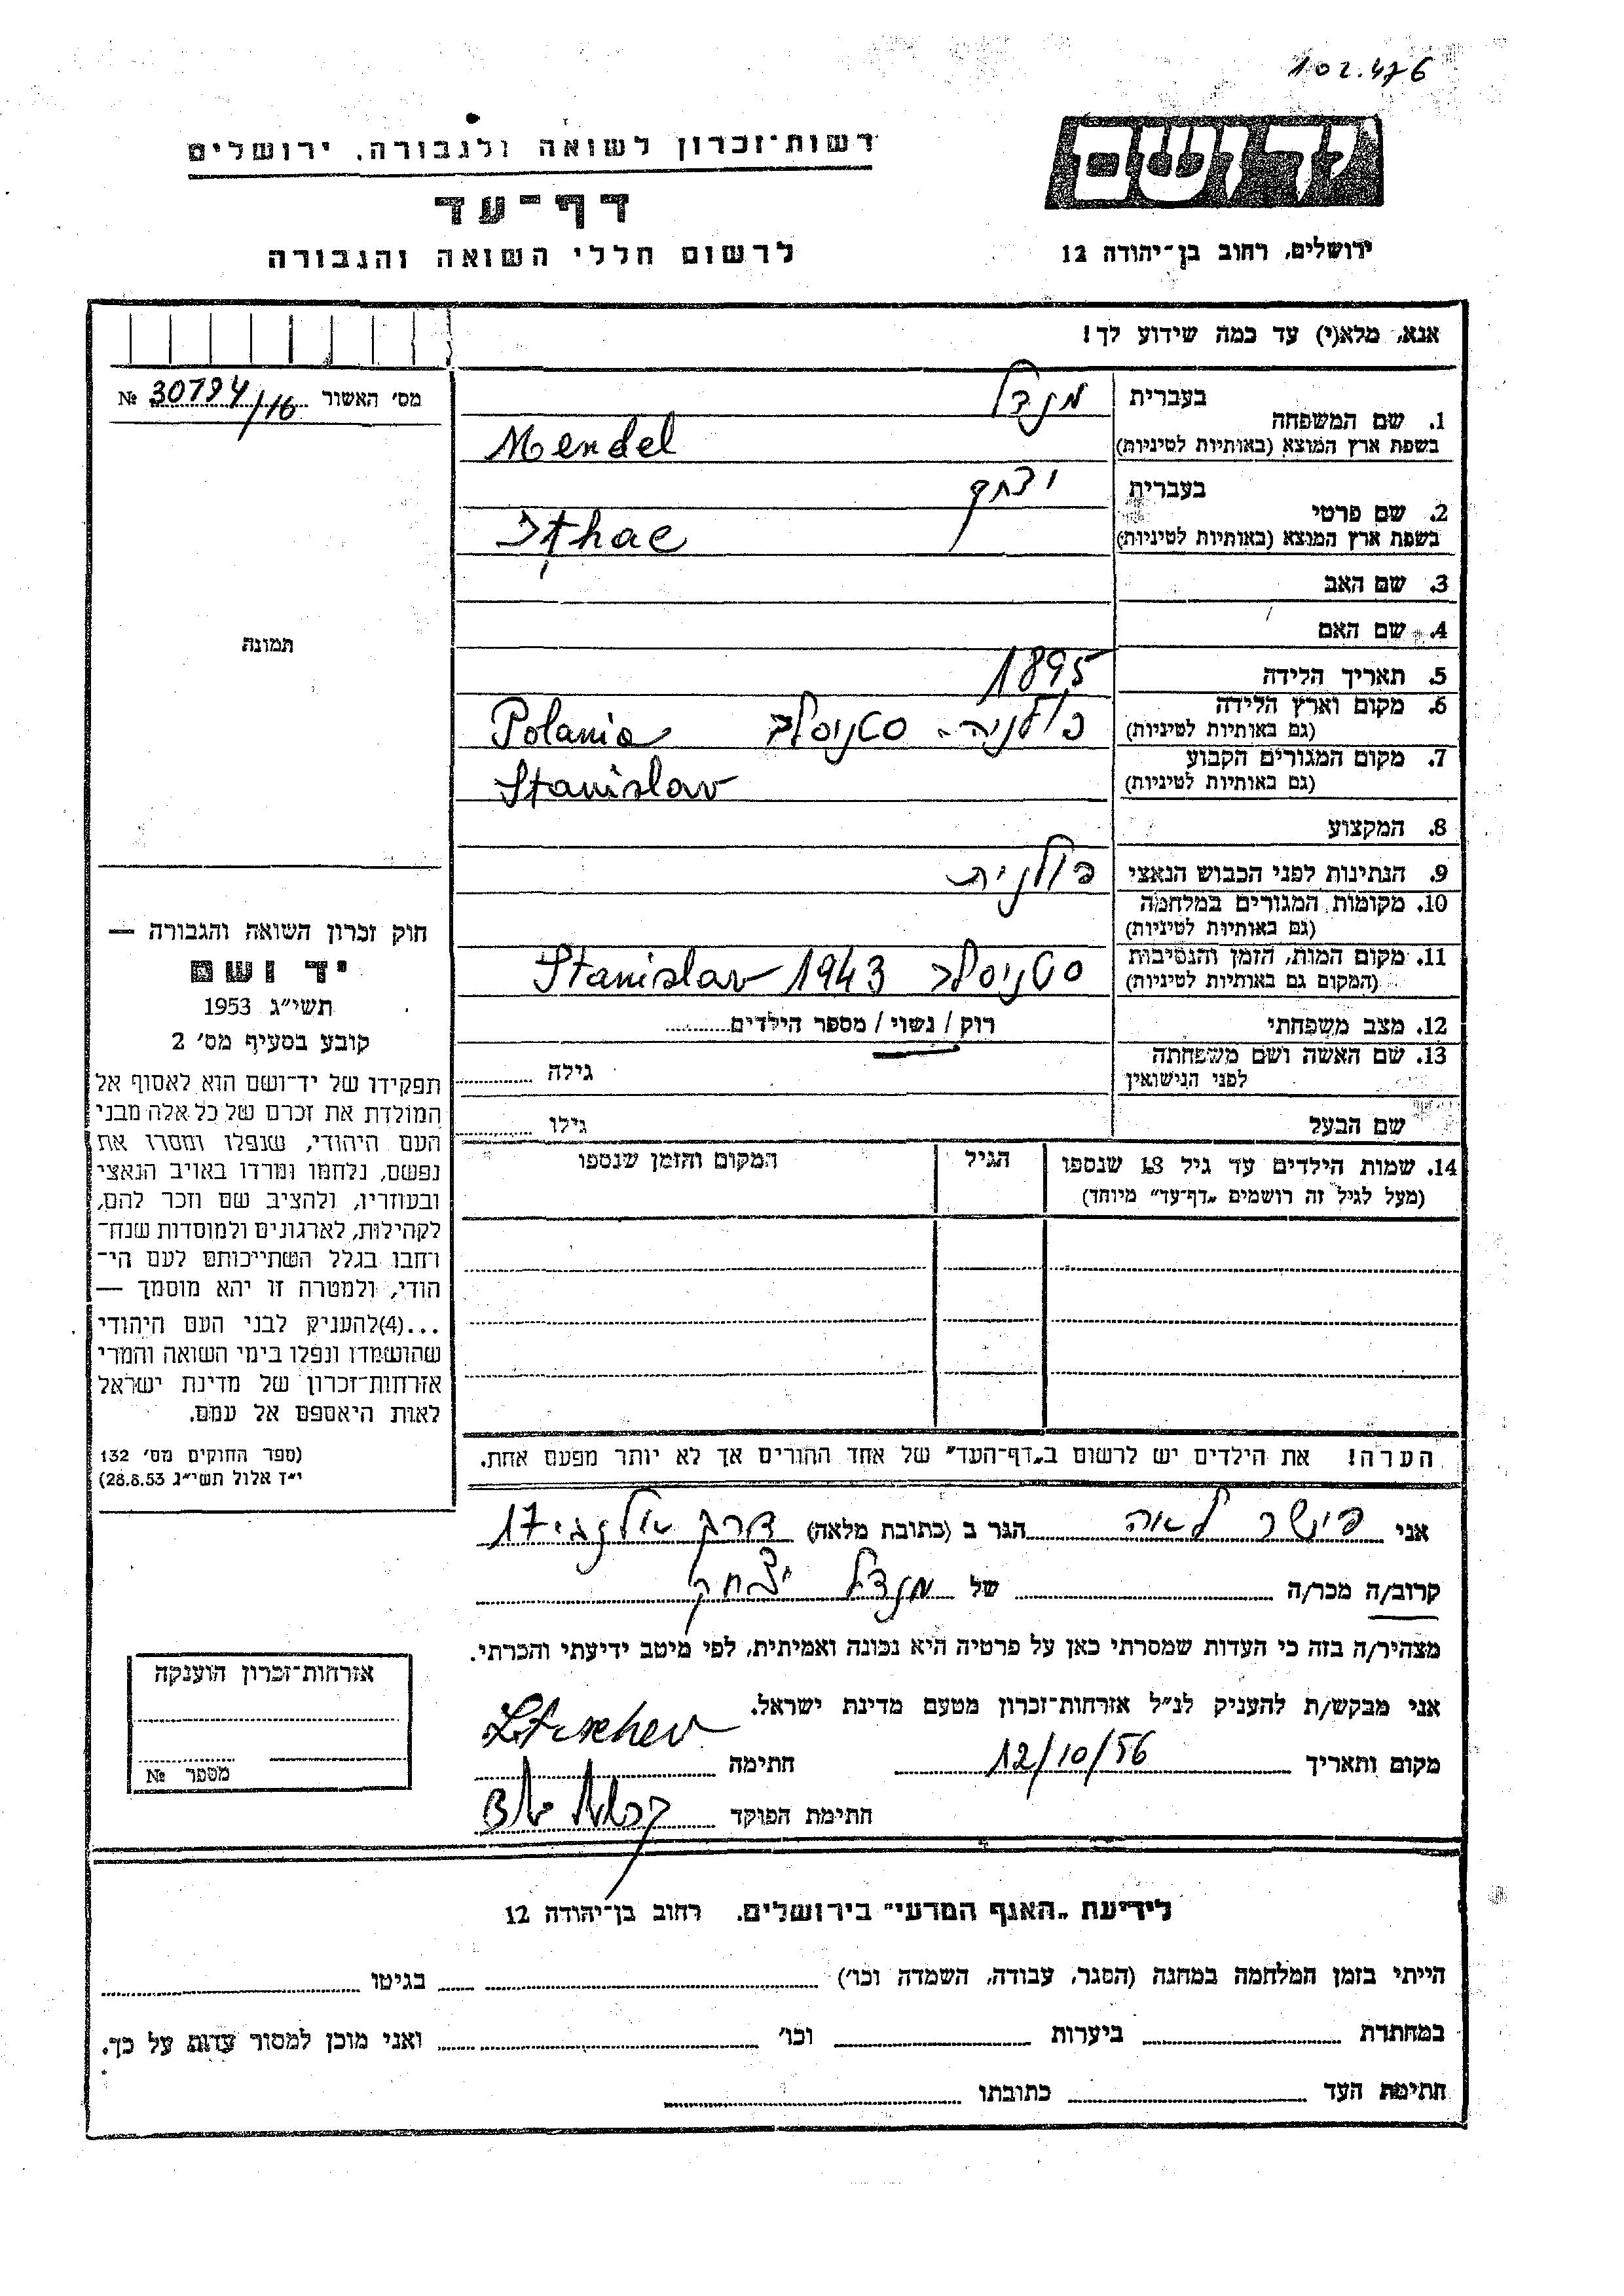 102.476
יד ושם
רשות־זכרון לשואה ולגבורה, ירושלים
דף־עד
לרשום חללי השואה והגבורה
ירושלים, רחוב בן־יהודה 12
אנא, מלא(י) עד כמה שידוע לך!
מס׳ האשור 30794/116 №
1. שם המשפחה
בעברית מנדל
בשפת ארץ המוצא (באותיות לטיניות) Mendel
2. שם פרטי
בעברית יצחק
בשפת ארץ המוצא (באותיות לטיניות) Izhac
3. שם האב
4. שם האם
5. תאריך הלידה 1895
6. מקום וארץ הלידה פולניה - סטניסלב Polania
(גם באותיות לטיניות)
7. מקום המגורים הקבוע Stanislav
(גם באותיות לטיניות)
8. המקצוע
9. הנתינות לפני הכבוש הנאצי פולנית
10. מקומות המגורים במלחמה
(גם באותיות לטיניות)
11. מקום המות, הזמן והנסיבות סטניסלב 1943 Stanislav
(המקום גם באותיות לטיניות)
12. מצב משפחתי רוק / נשוי / מספר הילדים
13. שם האשה ושם משפחתה
לפני הנישואין
גילה
שם הבעל
גילו
14. שמות הילדים עד גיל 18 שנספו
(מעל לגיל זה רושמים „דף־עד” מיוחד)
הגיל
המקום והזמן שנספו
הערה! את הילדים יש לרשום ב„דף־העד” של אחד ההורים אך לא יותר מפעם אחת.
תמונה
חוק זכרון השואה והגבורה —
יד ושם
תשי״ג 1953
קובע בסעיף מס׳ 2
תפקידו של יד־ושם הוא לאסוף אל
המולדת את זכרם של כל אלה מבני
העם היהודי, שנפלו ומסרו את
נפשם, נלחמו ומרדו באויב הנאצי
ובעוזריו, ולהציב שם וזכר להם,
לקהילות, לארגונים ולמוסדות שנח־
רחבו בגלל השתייכותם לעם הי־
הודי, ולמטרה זו יהא מוסמך —
...(4)להעניק לבני העם היהודי
שהושמדו ונפלו בימי השואה והמרי
אזרחות־זכרון של מדינת ישראל
לאות היאספם אל עמם.
(ספר החוקים מס׳ 132
י״ז אלול תשי״ג 28.8.53)
אני פישר לאה הגר ב (כתובת מלאה) דרך 17
קרוב/ה מכר/ה של מנדל יצחק
מצהיר/ה בזה כי העדות שמסרתי כאן על פרטיה היא נכונה ואמיתית, לפי מיטב ידיעתי והכרתי.
אני מבקש/ת להעניק לנ״ל אזרחות־זכרון מטעם מדינת ישראל.
מקום ותאריך 12/10/56 חתימה
חתימת הפוקד
אזרחות־זכרון הוענקה
מספר №
לידיעת „האגף המדעי” בירושלים, רחוב בן־יהודה 12
הייתי בזמן המלחמה במחנה (הסגר, עבודה, השמדה וכו׳) בגיטו
במחתרת ביערות וכו׳ ואני מוכן למסור עדות על כך.
חתימת העד כתובתו